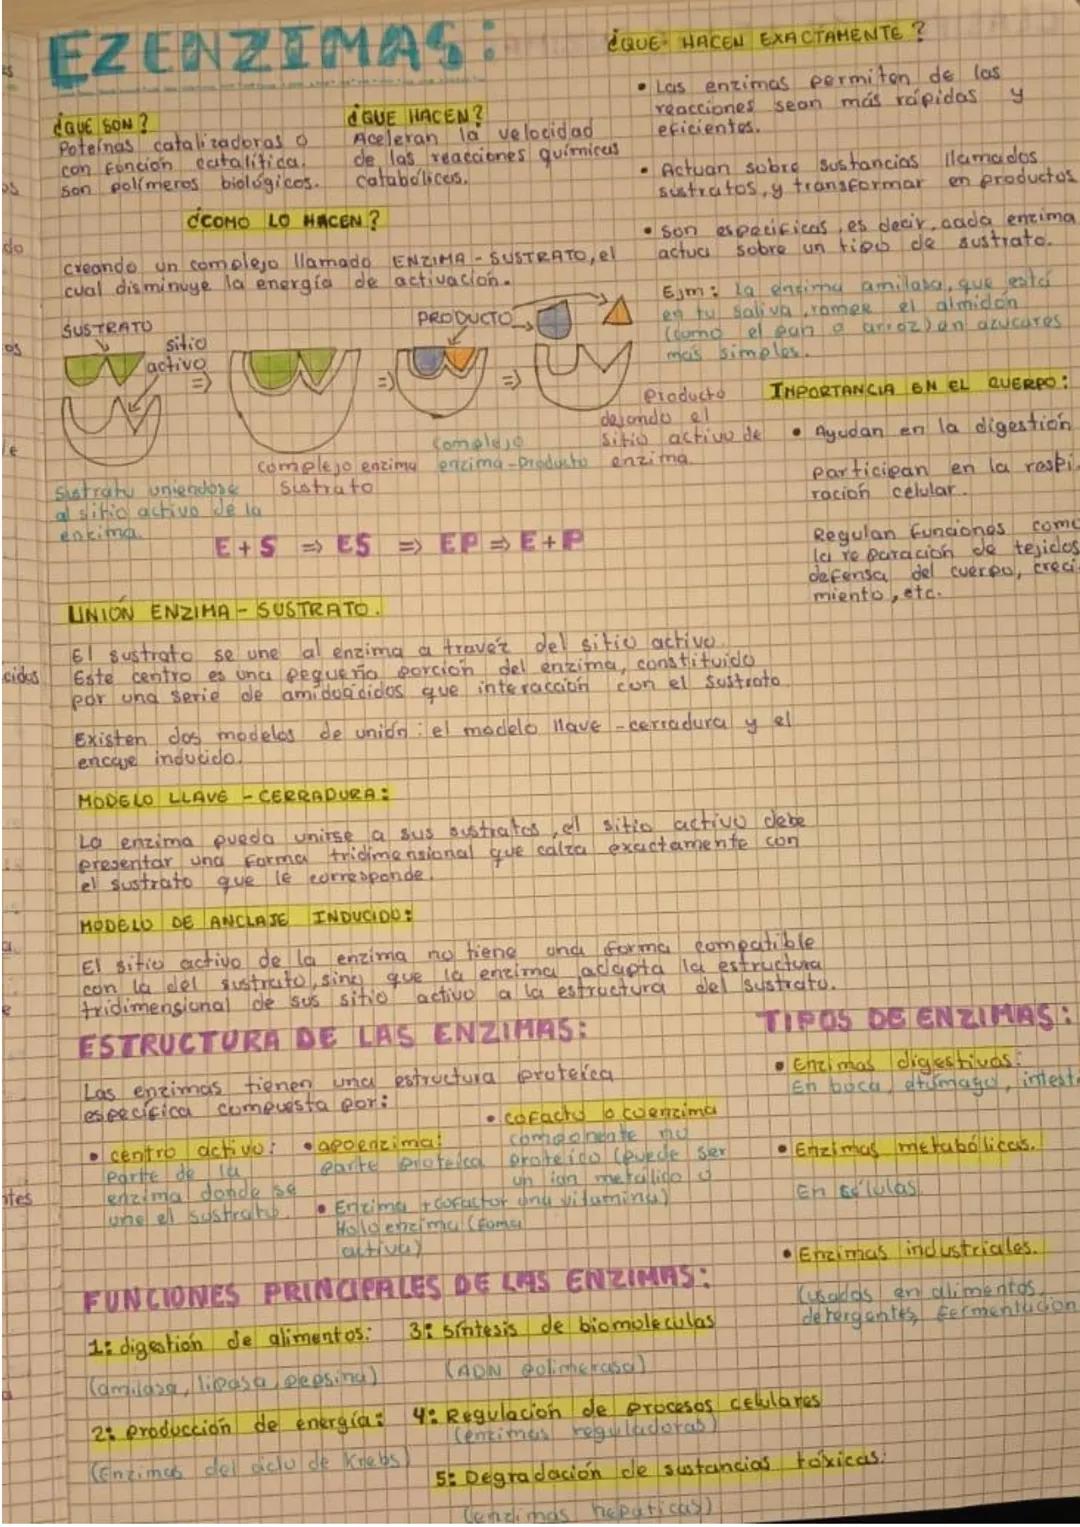 EZENZIMAS:
¿QUE SON?
Poteínas catalizadoras o
con función catalítica.
son polímeros biológicos.
¿QUE HACEN?
Aceleran la velocidad
de las reacciones químicas
catabólicas.
¿COMO LO HACEN?
creando un complejo llamado ENZIMA-SUSTRATO, el
cual disminuye la energía de activación.
SUSTRATO
sitio
activo
PRODUCTO
Sustrato uniendose
al sitio activo de la
enzima.
complejo enzima
Sustrato
Complejo
enzima-producto
Producto
dejando el
sitio activo de
enzima.
E+S ⇒ ES ⇒ EP ⇒ E+P
¿QUE HACEN EXACTAMENTE?
• Las enzimas permiten de las
reacciones sean más rápidas y
eficientes.
• Actuan sobre sustancias llamados
sustratos, y transformar en productos
• Son especificas, es decir, cada enzima
actua sobre un tipo de sustrato.
Ejm: la enzima amilasa, que está
en tu saliva, rompe el almidón
(como el pan o arroz) en azucares
más simples.
IMPORTANCIA EN EL CUERPO:
• Ayudan en la digestión
participan en la respi-
ración celular.
Regulan funciones como
la reparación de tejidos
defensa del cuerpo, creci-
miento, etc.
UNIÓN ENZIMA-SUSTRATO.
El sustrato se une al enzima a travez del sitio activo.
Este centro es una pequeña porción del enzima, constituido
por una serie de amidoacidos que interacción con el sustrato
Existen dos modelos de unión: el modelo llave-cerradura y el
encaje inducido.
MODELO LLAVE-CERRADURA:
La enzima pueda unirse a sus sustratos, el sitio activo debe
presentar una forma tridimensional que calza exactamente con
el sustrato que le corresponde.
MODELO DE ANCLAJE INDUCIDO:
El sitio activo de la enzima no tiene una forma compatible
con la del sustrato, sino que la enzima adapta la estructura
tridimensional de sus sitio activo a la estructura del sustrato.
ESTRUCTURA DE LAS ENZIMAS:
Las enzimas tienen una estructura proteica
específica compuesta por:
• centro activo:
parte de la
enzima donde se
une el sustrato.
• apoenzima:
parte proteica
• cofacto o coenzima
componente no
proteico (puede ser
un ion metálico o
una vitamina)
• Enzima + cofactor
Holoenzima (forma
activa)
TIPOS DE ENZIMAS:
• Enzimas digestivas:
En boca, etómago, intest
• Enzimas metabólicas.
En células
• Enzimas industriales.
(usadas en alimentos,
detergentes, fermentación
FUNCIONES PRINCIPALES DE LAS ENZIMAS:
1: digestión de alimentos:
(amilasa, lipasa, pepsina)
2: producción de energía:
(Enzimas del ciclo de Krebs)
3: síntesis de biomoleculas
(ADN polimerasa)
4: Regulación de procesos celulares
(enzimas reguladoras)
5: Degradación de sustancias tóxicas:
(enzimas hepáticas)
cidos
do
os
ntes